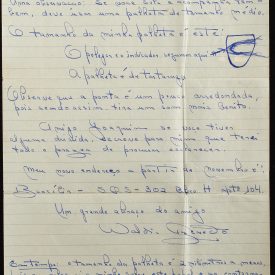 Uma observação. Se você está a acompanhar
bem, deve usar uma palheta de tamanho médio.
O tamanho da minha palheta é este:
O polegar e o indicador seguram aqui
A palheta é de tartaruga
Observe que a ponta é um pouco arredondada,
pois sendo assim tira um som mais bonito.
Amigo Joaquim se você tiver
alguma dúvida, escreva para mim que terei
todo o prazer de procurar esclarecer.
Meu novo endereço a partir de novembro é:
Brasília - SQS - 302 Bloco H apto 104.
Um grande abraço do amigo
Waldir Azevedo
Em tempo: o tamanho da palheta é 2 milímetros a menos,